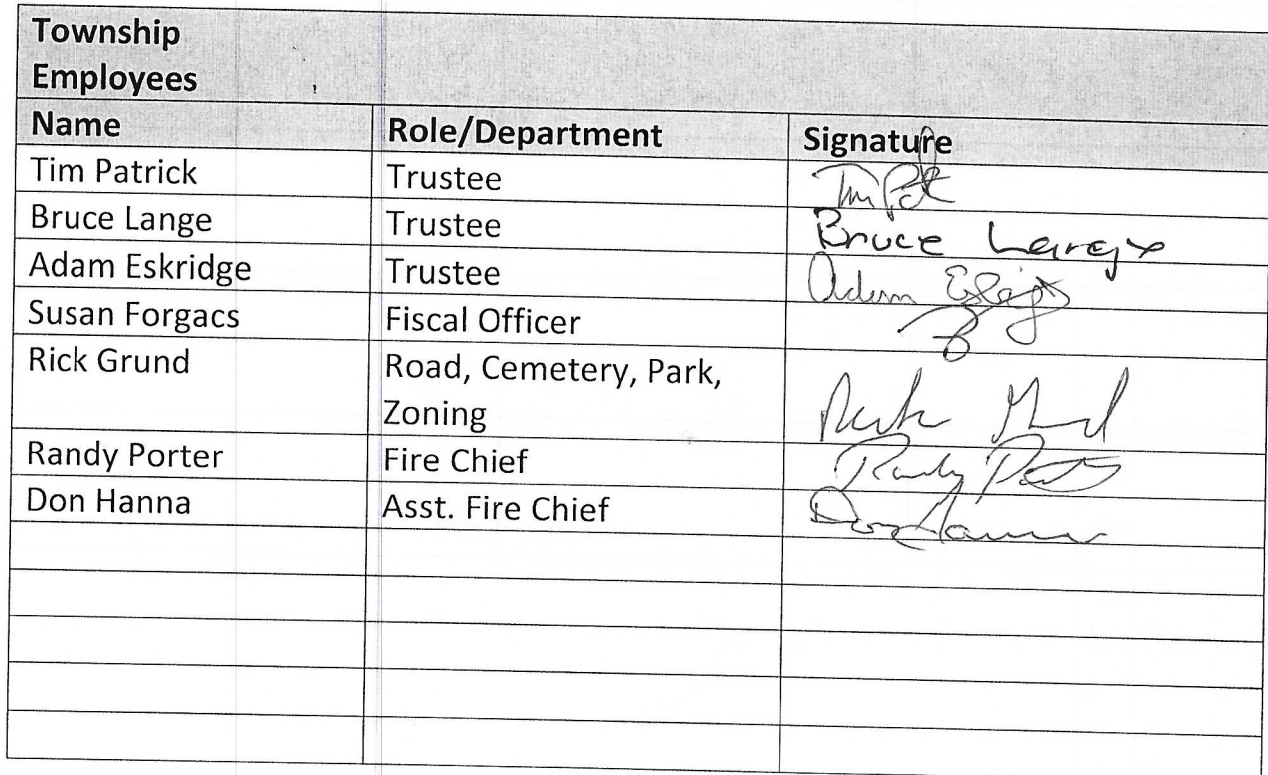 Township
Employees
Name Role/Department Signature
Tim Patrick Trustee Tim Pat
Bruce Lange Trustee Bruce Lange
Adam Eskridge Trustee Adam
Susan Forgacs Fiscal Officer
Rick Grund Road, Cemetery, Park,
Zoning
Randy Porter Fire Chief Randy
Don Hanna Asst. Fire Chief Don Hanna